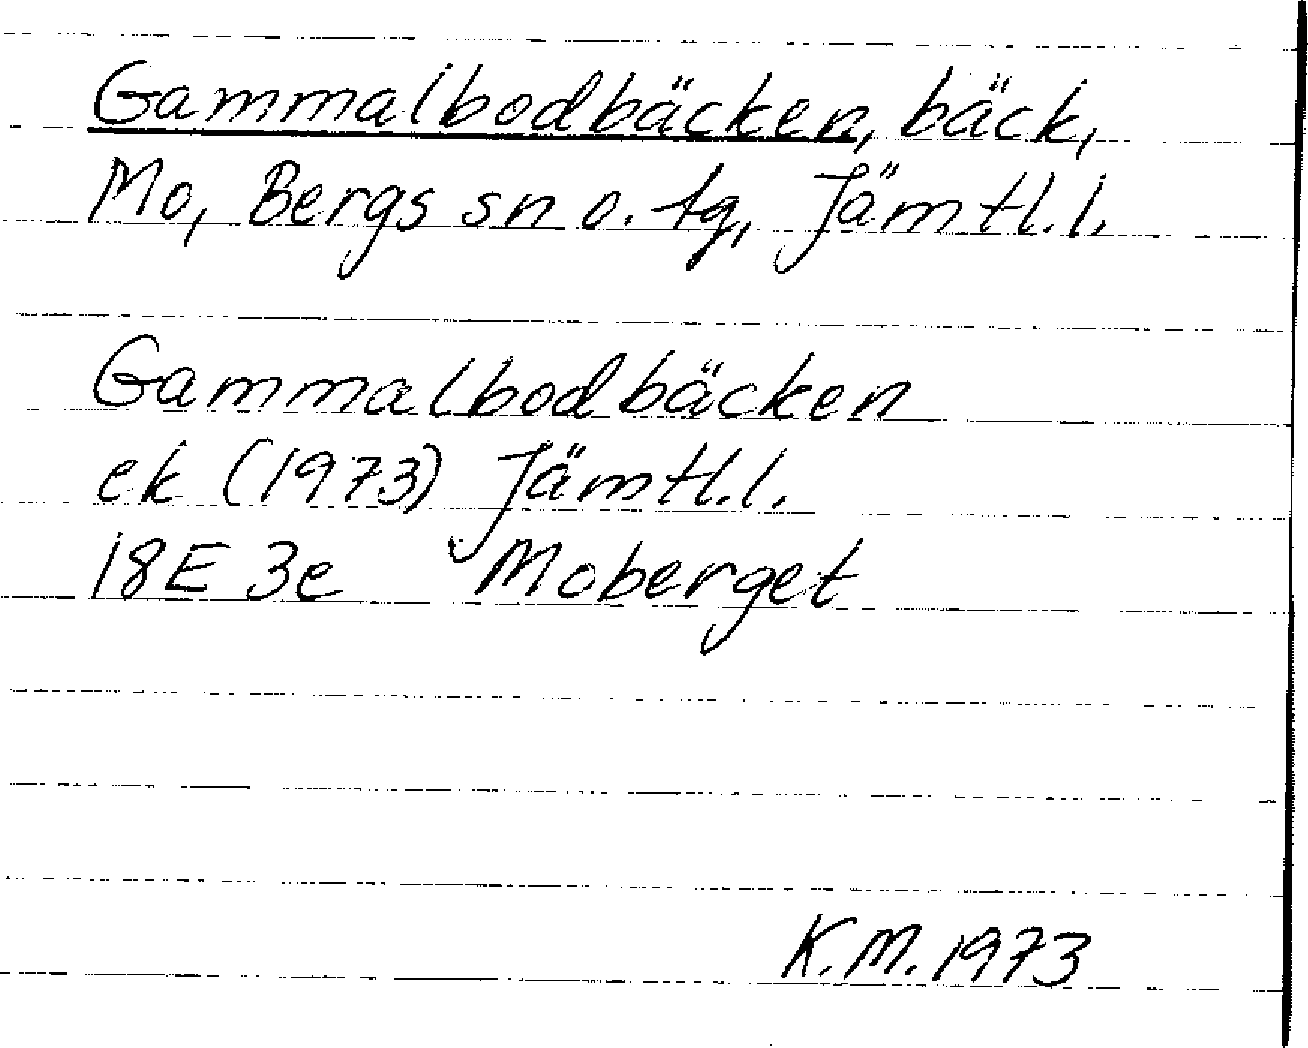 Gammalbodbäcken, bäck,
Mo, Bergs sn o. tg, Jämtl. l.
Gammalbodbäcken
ek (1973) Jämtl. l.
18E 3e Moberget
K.M. 1973